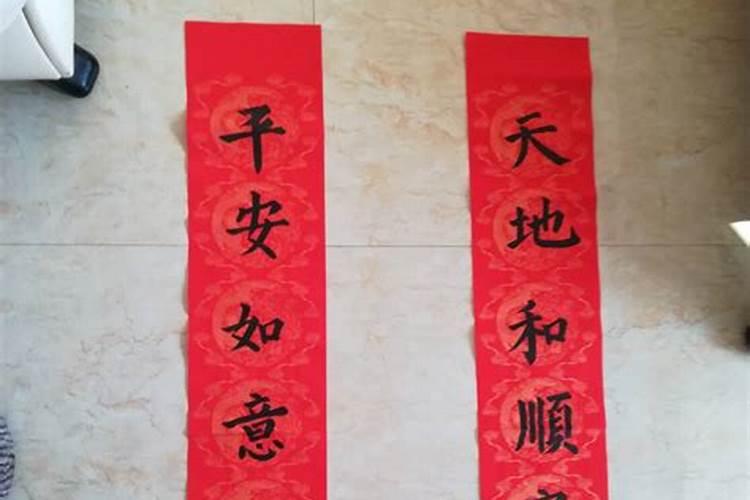 天地和順
平安如意